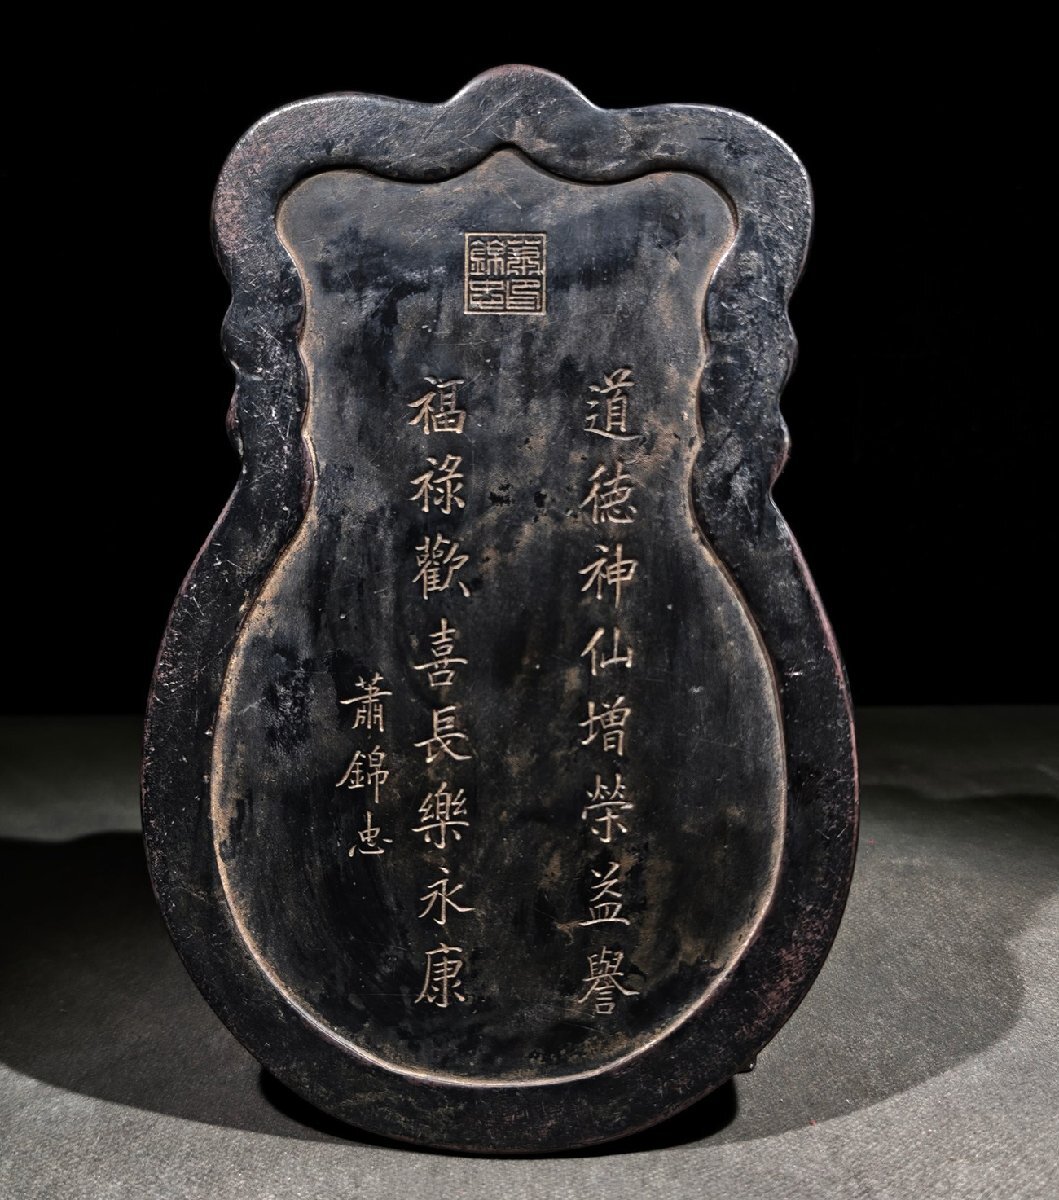 蕭錦忠印
道德神仙增榮益譽
福祿歡喜長樂永康
蕭錦忠